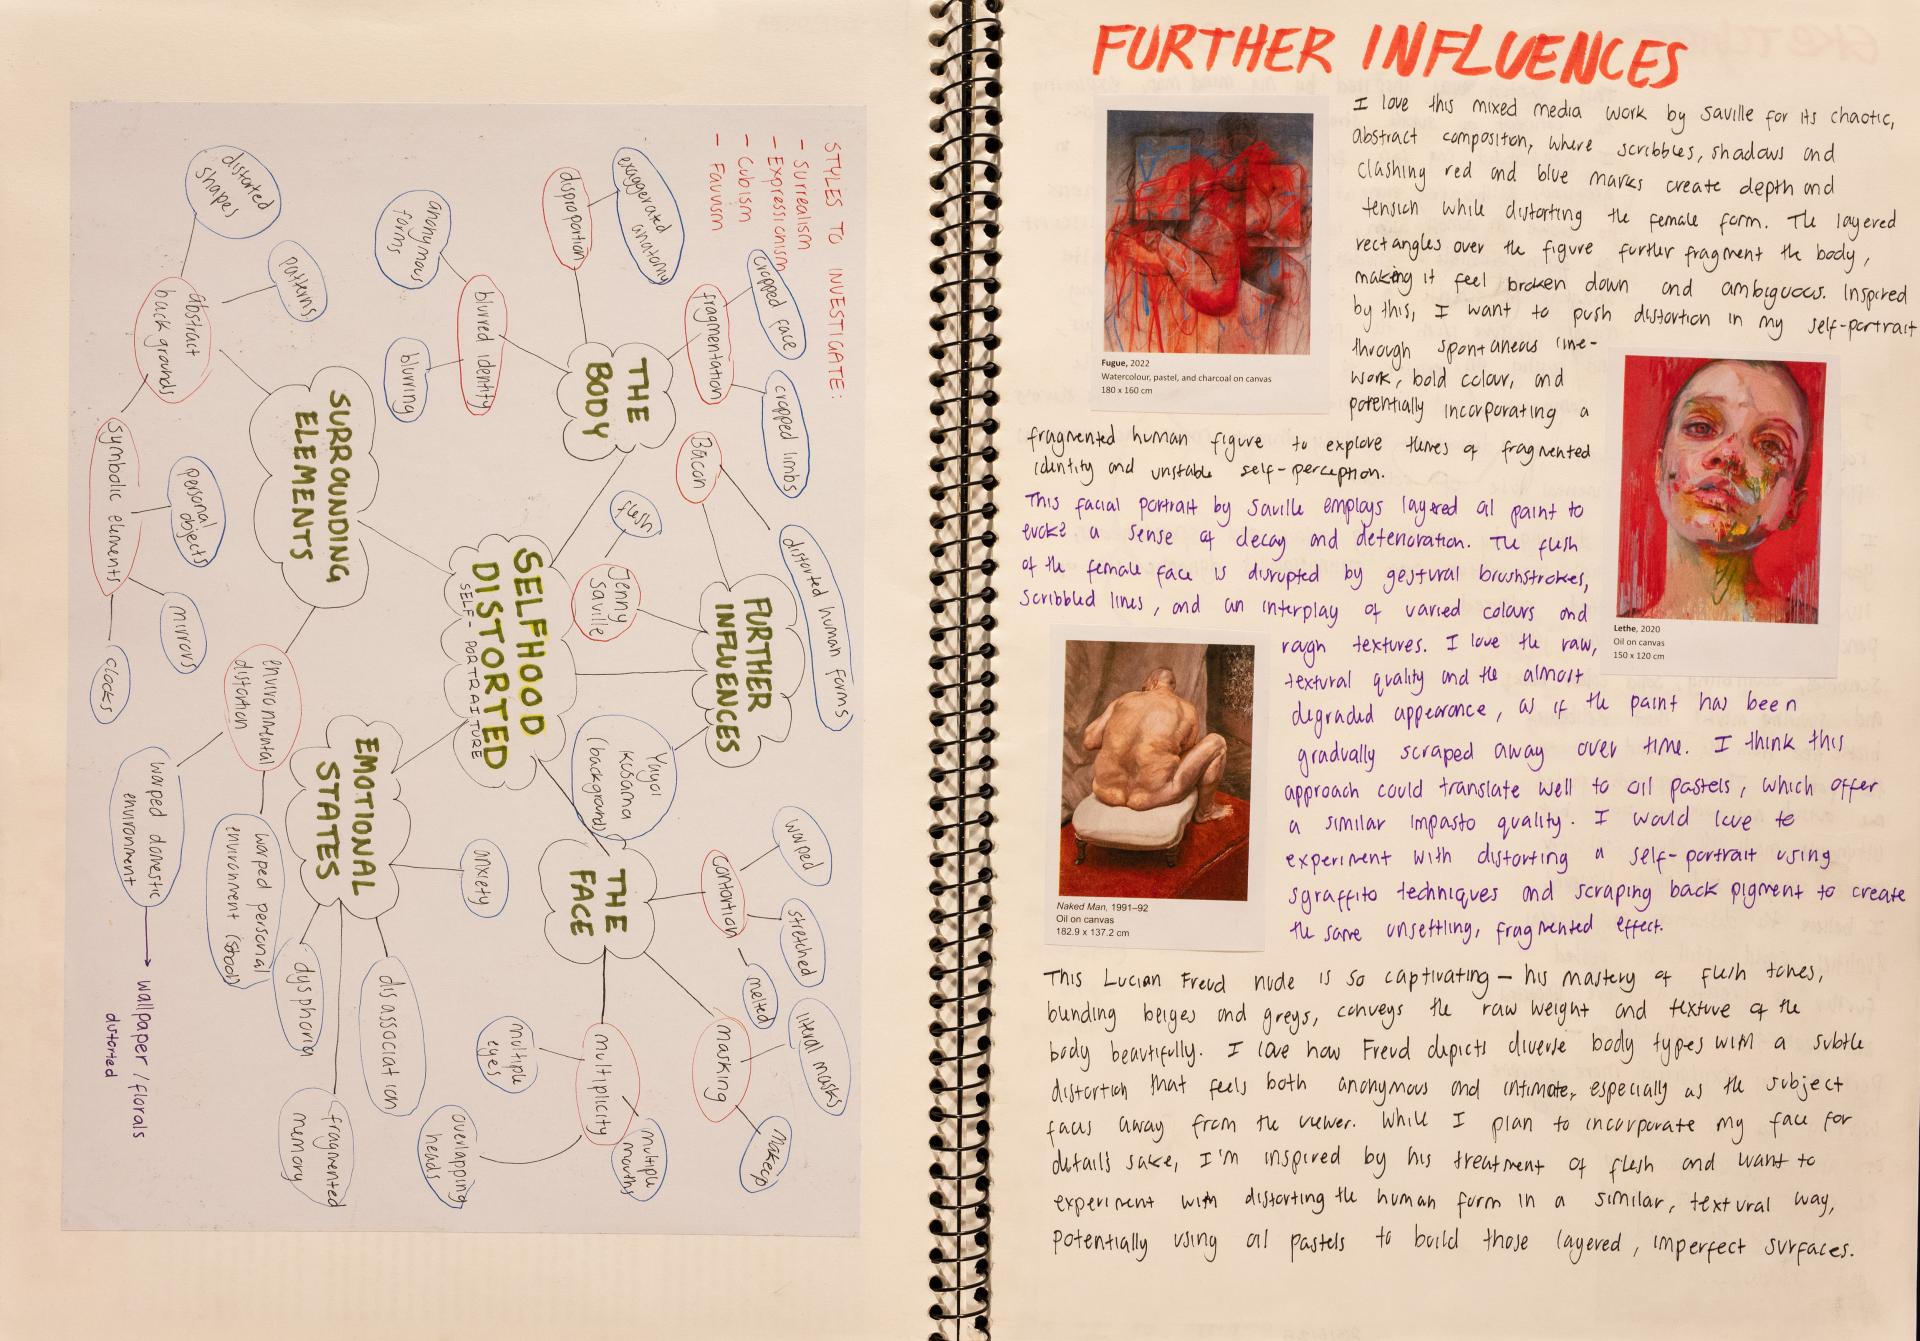 STYLES TO INVESTIGATE:
- Surrealism
- Expressionism
- Cubism
- Fauvism
SELFHOOD
DISTORTED
SELF-PORTRAITURE
THE
BODY
disproportion
exaggerated
anatomy
blurred identity
anonymous
forms
blurring
fragmentation
cropped face
cropped limbs
FURTHER
INFLUENCES
Bacon
distorted human forms
Jenny
Saville
flesh
Yayoi
Kusama
(background)
THE
FACE
contortion
warped
stretched
melted
masking
literal masks
Makeup
multiplicity
multiple
eyes
multiple
mouths
overlapping
heads
EMOTIONAL
STATES
anxiety
disassociation
fragmented
memory
SURROUNDING
ELEMENTS
abstract
backgrounds
distorted
shapes
patterns
symbolic elements
personal
objects
mirrors
clocks
environmental
distortion
warped domestic
environment
wallpaper/florals
distorted
warped personal
environment
FURTHER INFLUENCES
I love this mixed media work by Saville for its chaotic,
abstract composition, where scribbles, shadows and
clashing red and blue marks create depth and
tension while distorting the female form. The layered
rectangles over the figure further fragment the body,
making it feel broken down and ambiguous. Inspired
by this, I want to push distortion in my self-portrait
through spontaneous line-
work, bold colour, and
potentially incorporating a
fragmented human figure to explore themes of fragmented
identity and unstable self-perception.
Fugue, 2022
Watercolour, pastel, and charcoal on canvas
180 x 160 cm
This facial portrait by Saville employs layered oil paint to
evoke a sense of decay and deterioration. The flesh
of the female face is disrupted by gestural brushstrokes,
scribbled lines, and an interplay of varied colours and
rough textures. I love the raw,
textural quality and the almost
degraded appearance, as if the paint has been
gradually scraped away over time. I think this
approach could translate well to oil pastels, which offer
a similar impasto quality. I would love to
experiment with distorting a self-portrait using
sgraffito techniques and scraping back pigment to create
the same unsettling, fragmented effect.
Lethe, 2020
Oil on canvas
150 x 120 cm
Naked Man, 1991–92
Oil on canvas
182.9 x 137.2 cm
This Lucian Freud nude is so captivating — his mastery of flesh tones,
blending beiges and greys, conveys the raw weight and texture of the
body beautifully. I love how Freud depicts diverse body types with a subtle
distortion that feels both anonymous and intimate, especially as the subject
faces away from the viewer. While I plan to incorporate my face for
details sake, I'm inspired by his treatment of flesh and want to
experiment with distorting the human form in a similar, textural way,
potentially using oil pastels to build those layered, imperfect surfaces.